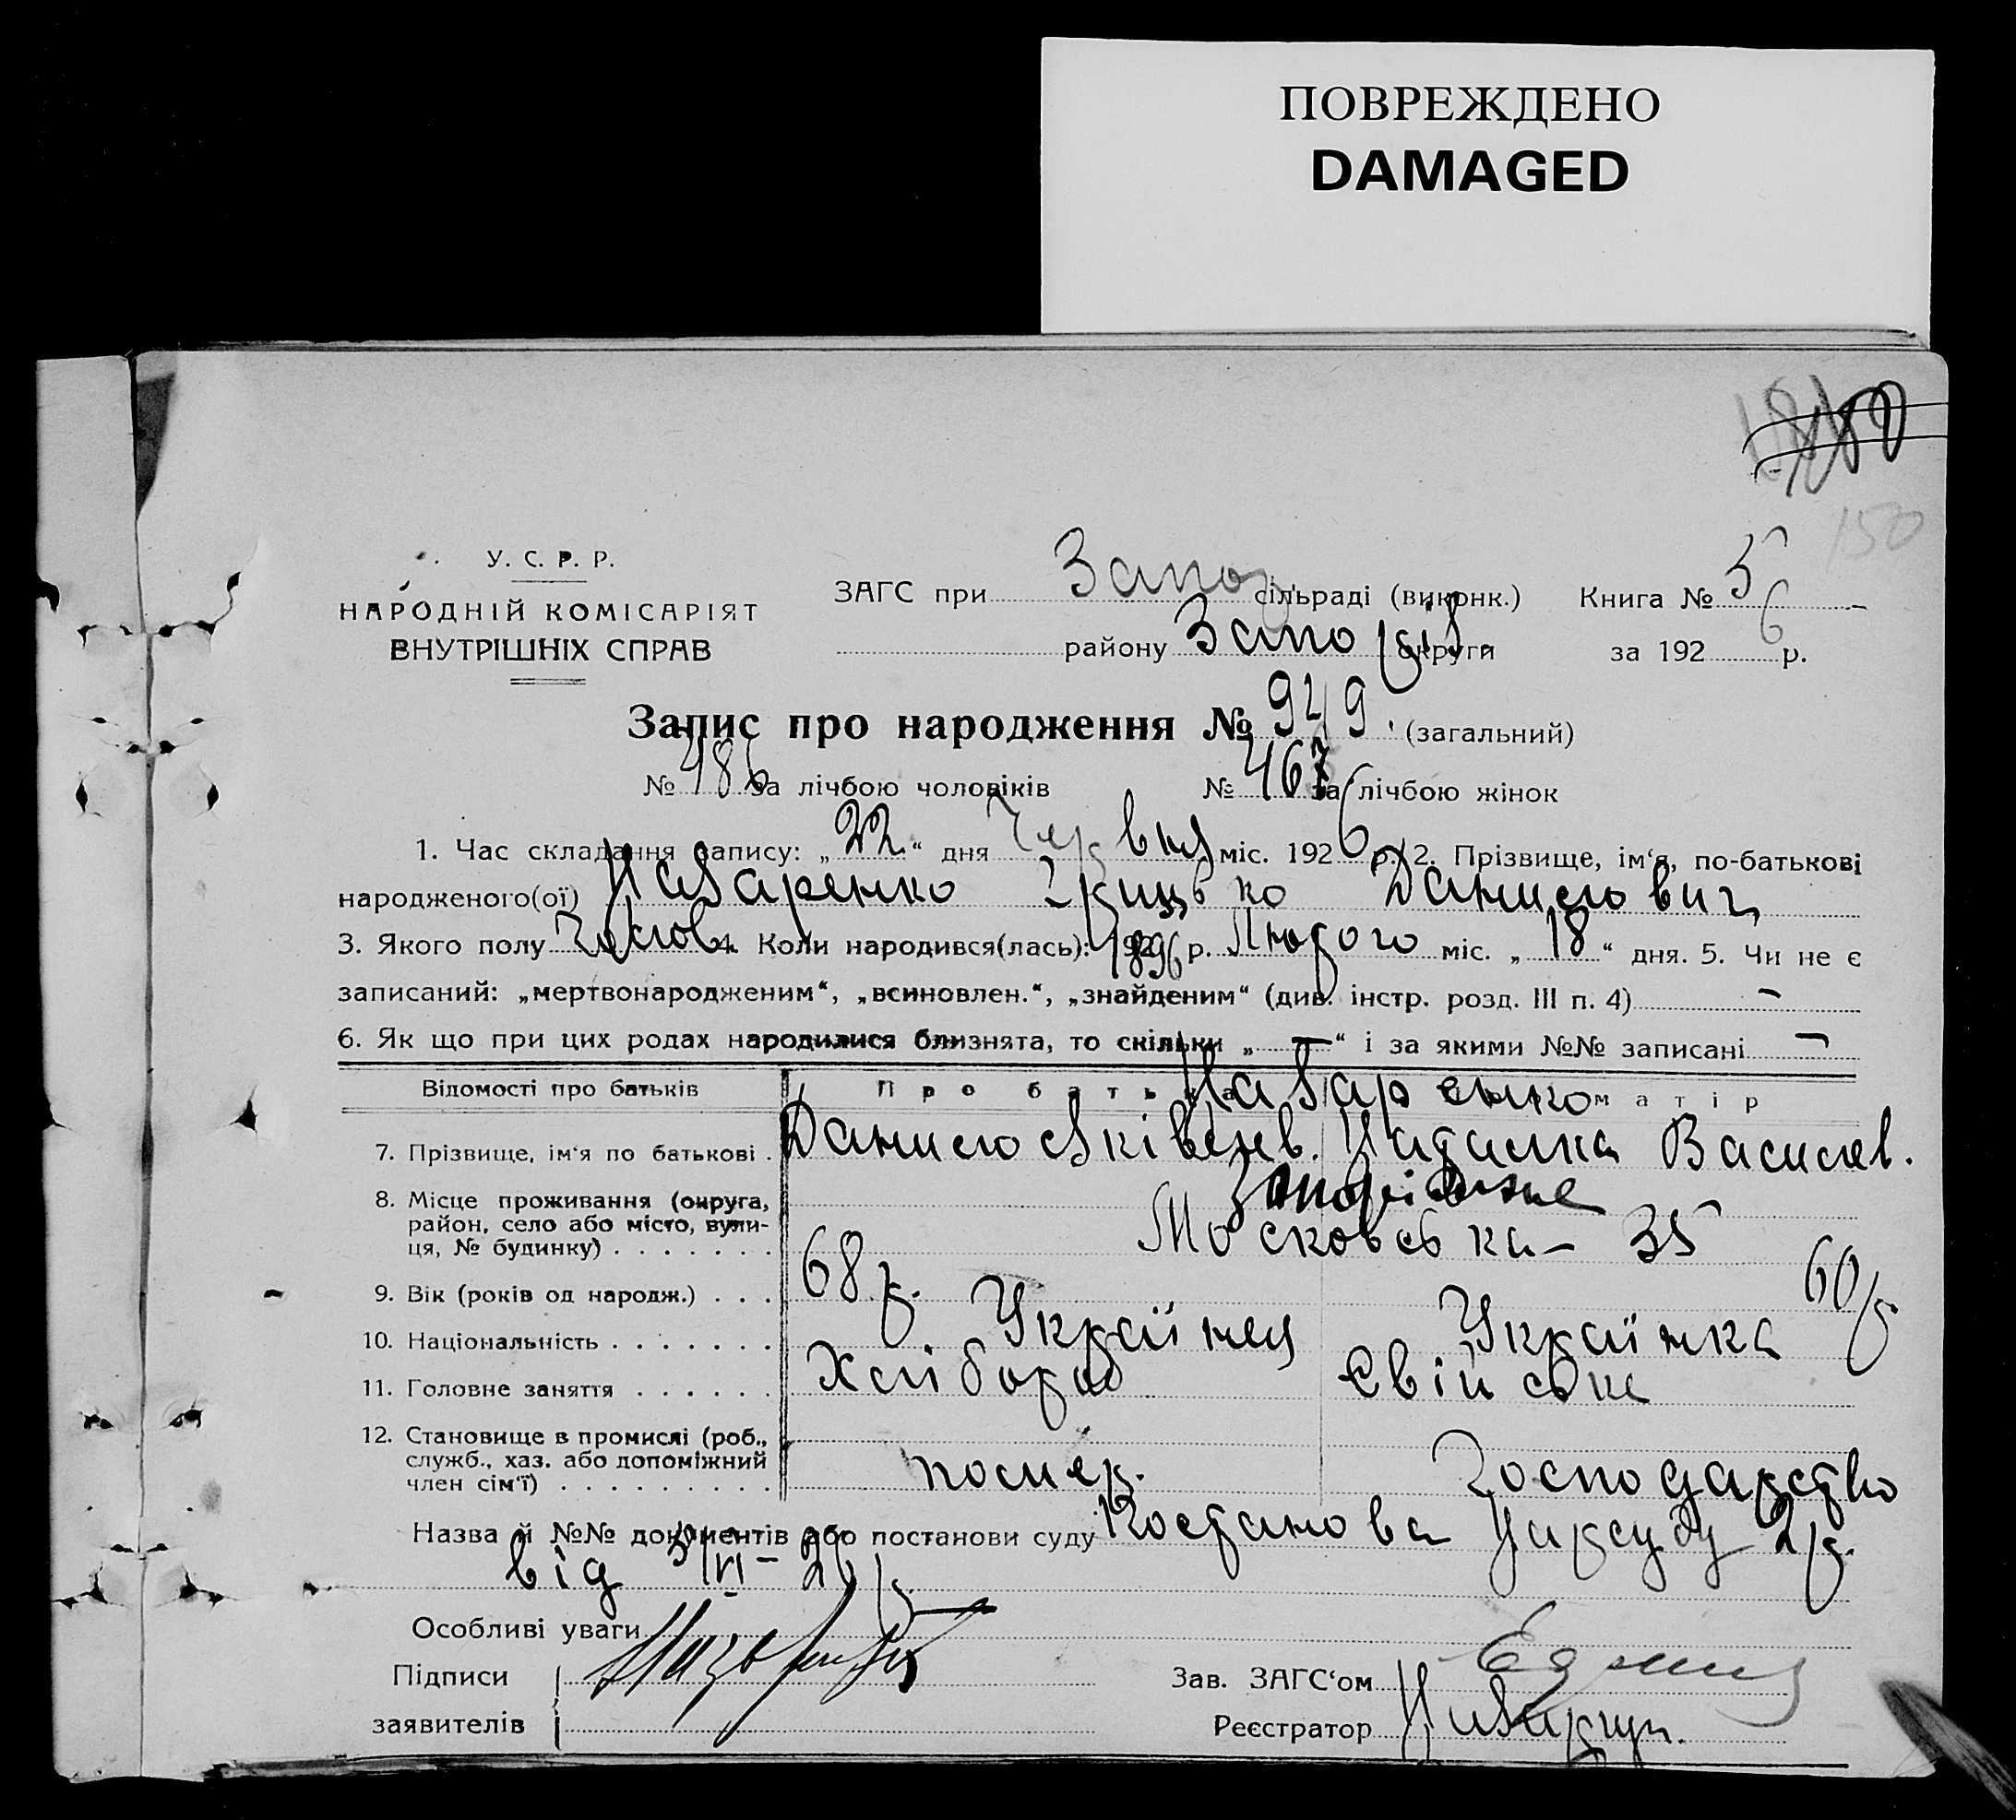 ПОВРЕЖДЕНО
DAMAGED
150
У. С. Р. Р.
НАРОДНІЙ КОМІСАРІЯТ
ВНУТРІШНІХ СПРАВ
ЗАГС при Запор сільраді (виконк.) Книга № 5
району Запоріз округи за 192 6 р.
Запис про народження № 949. (загальний)
№ 486 за лічбою чоловіків № 463 за лічбою жінок
1. Час складання запису: „ 22 “ дня Червня міс. 192 6 р. 2. Прізвище, ім‘я, по-батькові
народженого(ої) Назаренко Грицько Данилович
3. Якого полу Чолов. 4. Коли народився(лась): 1896 р. Лютого міс. „ 18 “ дня. 5. Чи не є
записаний: „мертвонародженим“, „всиновлен.“, „знайденим“ (див. інстр. розд. III п. 4) –
6. Як що при цих родах народилися близнята, то скільки „ – “ і за якими №№ записані –
Відомості про батьків Про батька матір
Назаренко
7. Прізвище, ім‘я по батькові . Данило Василев.
8. Місце проживання (округа, район, село або місто, вули- ця, № будинку) . . . . . . . Запоріжже
Московська – 35
9. Вік (років од народж.) . . . 68 р. 60 р.
10. Національність . . . . . . . Українец Українка
11. Головне заняття . . . . . . Хлібороб Свійське
12. Становище в промислі (роб., служб., хаз. або допоміжний член сім‘ї) . . . . . . . . . помер. господарство
Назва й №№ документів або постанови суду Постанова Нарсуду 2 р.
від 5/VI – 26 р.
Особливі уваги –
Підписи
заявителів
Зав. ЗАГС‘ом
Реєстратор